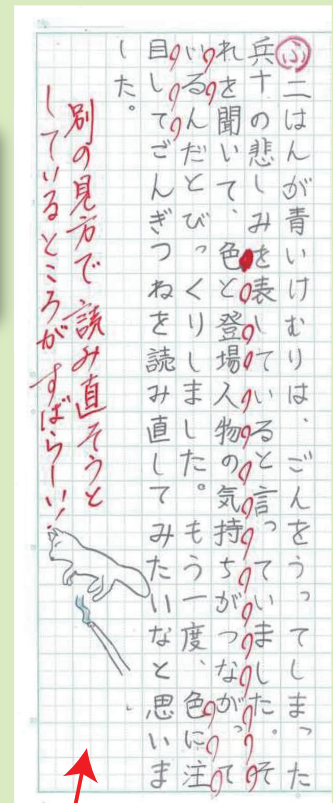 ふ 二はんが青いけむりは、ごんをうってしまった
兵十の悲しみを表していると言っていました。そ
れを聞いて、色と登場人物の気持ちがつながって
いるんだとびっくりしました。もう一度、色に注
目してごんぎつねを読み直してみたいなと思いま
した。
別の見方で読み直そうと
しているところがすばらしい!